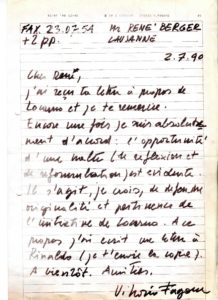 FAX. 23.07.54
Mr RENE' BERGER
+2 pp.
LAUSANNE
2.7.90
Cher René,
j'ai reçu ta lettre à propos de
Locarno et je te remercie.
Encore une fois je suis absolute-
ment d'accord: l'opportunité
d'une halte de réflexion et
de reformulation est evidente.
Il s'agit, je crois, de defendre
originalité et pertinence de
l'initiative de Locarno. A ce
propos j'ai écrit une lettre à
Rinaldo (je t'envoie la copie).
A bientôt. Amitiés.
Vittorio Fagone